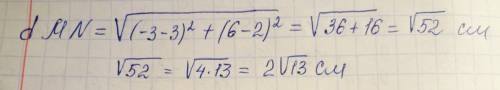 d MN = √((-3-3)² + (6-2)²) = √(36+16) = √52 см
√52 = √(4·13) = 2√13 см